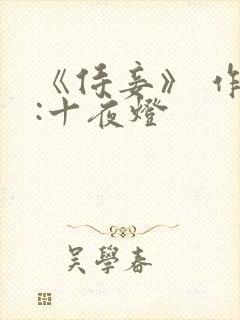 《侍妾》 作
:十夜燈
吴學春